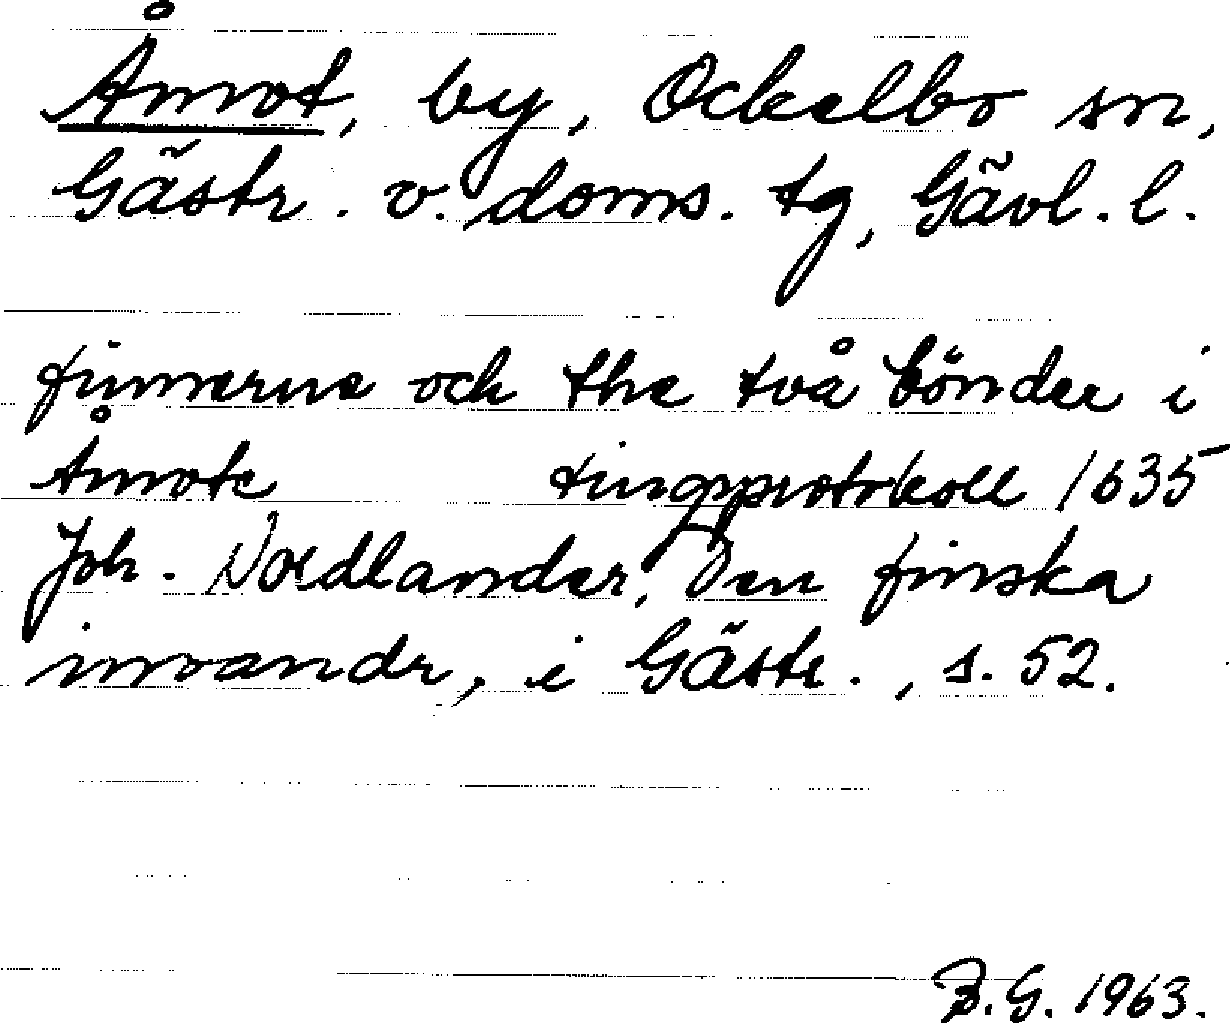 Åmot, by, Ockelbo sn,
Gästr. v. doms. tg, Gävl. l.
finnerne och the två bönder i
Åmote tingsprotokoll 1635
Joh. Nordlander, Den finska
invandr, i Gästr., s. 52.
B.G. 1963.